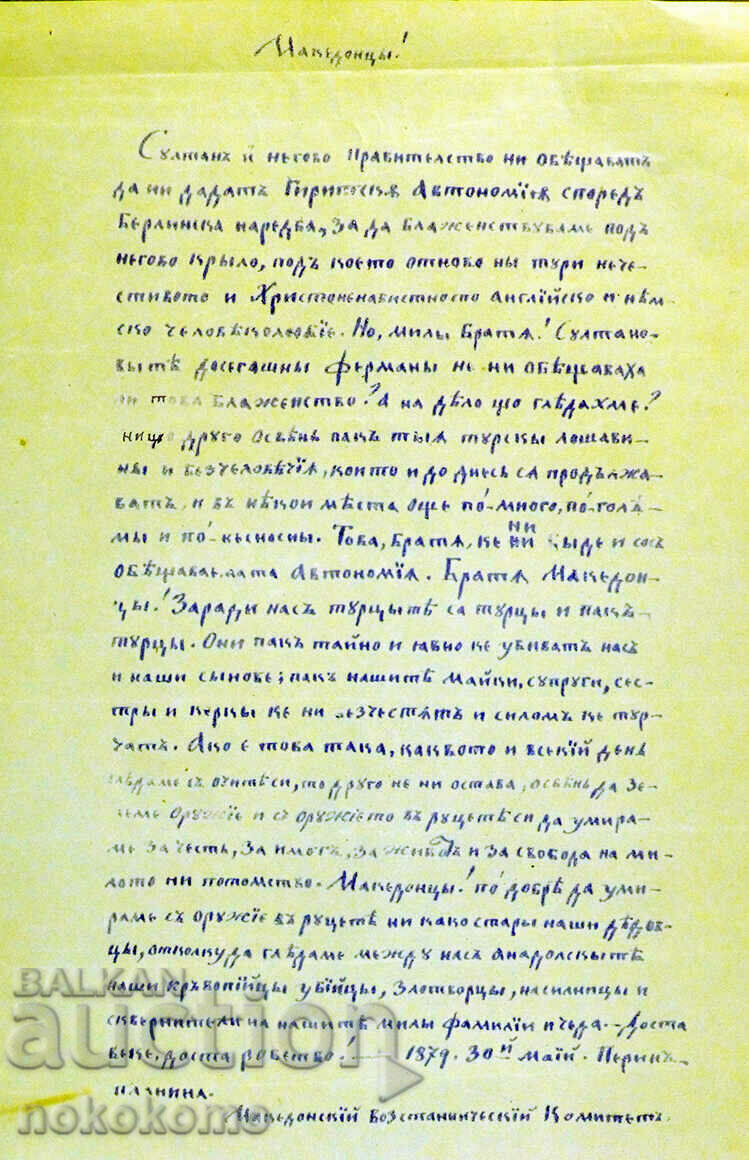 Македонцы!
Султанъ и негово правителство ни обѣщаватъ
да ни дадатъ Автономіѭ споредъ
Берлинска наредба, за да блаженствуваме подъ
негово крыло, подъ което отново ны тури нече-
стивото и Христоненавистното Англійско и нѣм-
ско человѣколюбіе. Но, милы братя! Султано-
вытѣ досегашны ферманы не ни обѣщаваха
ли това блаженство? А на дѣло що глѣдахме?
нищо друго освѣнь пакъ тыя турскы лошави-
ны и безчеловѣчія, които и до днесь ся продължа-
ватъ, и въ нѣкои мѣста още по́-много, по́-голѣ-
мы и по́-кьсносны. Това, братя, ке ни бѫде и сосъ
обѣщаваемата Автономія. Братя Македон-
цы! Заради насъ турцытѣ са турцы и пакъ
турцы. Они пакъ тайно и явно ке убиватъ насъ
и наши сынове; пакъ нашитѣ майки, супруги, сес-
тры и керкы ке ни безчестятъ и силомъ ке тур-
чатъ. Ако е това така, каквото и всекій день
глѣдаме съ очитѣ си, то друго не ни остава, освѣнь да зе-
меме оружіе и съ оружіето въ руцетѣ си да умира-
ме за честь, за имотъ, за животъ и за свобода на ми-
лото ни потомство. Македонцы! по́ добрѣ да уми-
раме съ оружіе въ руцетѣ ни како стары наши дѣдов-
цы, отколку да глѣдаме между насъ Анадолскытѣ
наши кръвопійцы убійцы, злотворцы, насилницы и
сквернители на нашитѣ милы фамиліи и чеда. – Доста
веке, доста робство! — 1879. 30й Маій. Перинъ
планина.
Македонскій Возстаническій Комитетъ.
BALKAN
auction
nokokomo